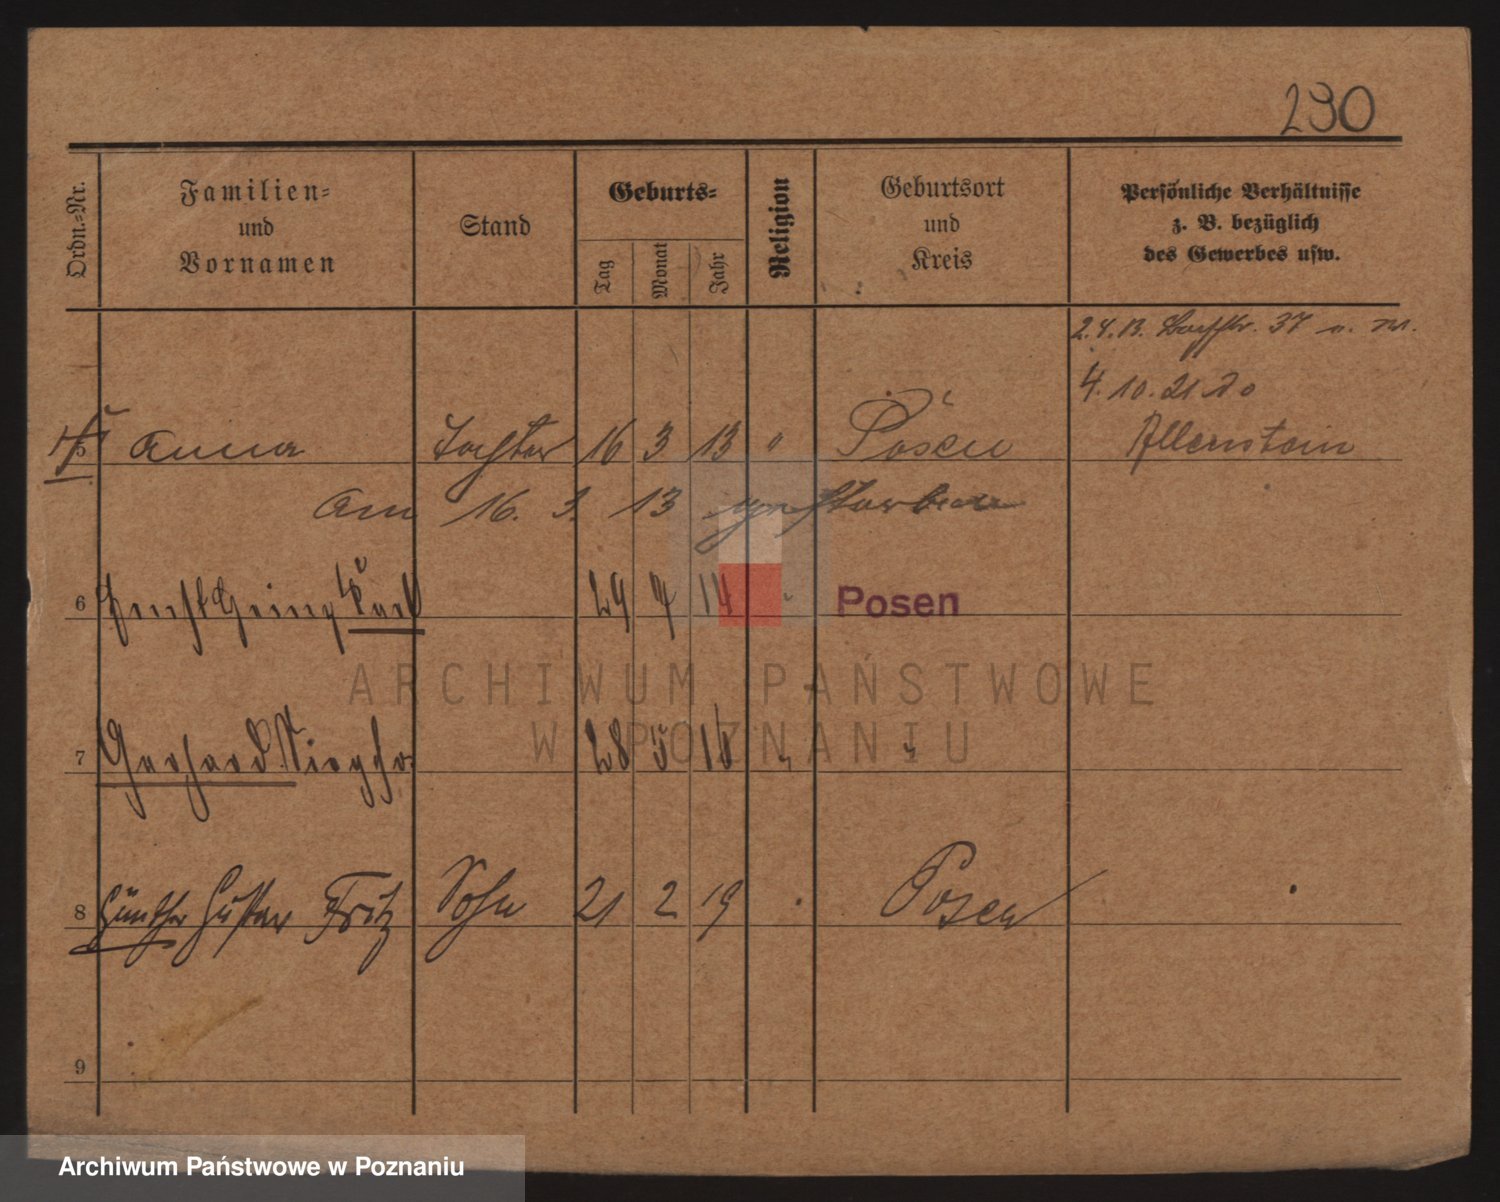 230
Ordn.-Nr.
Familien-
und
Vornamen
Stand
Geburts-
Tag
Monat
Jahr
Religion
Geburtsort
und
Kreis
Persönliche Verhältnisse
z. B. bezüglich
des Gewerbes usw.
2.4.13. 37
4. 10. 21
Allenstein
5 Anna Tochter 16 3 13 " Posen
Am 16. 3. 13 verstorben
6 Ernst Heinz Karl 29 7 14 Posen
ARCHIWUM PAŃSTWOWE
W POZNANIU
7 Gerhard 28 5 " "
8 Günther Gustav Fritz Sohn 21 2 19 Posen
9
Archiwum Państwowe w Poznaniu